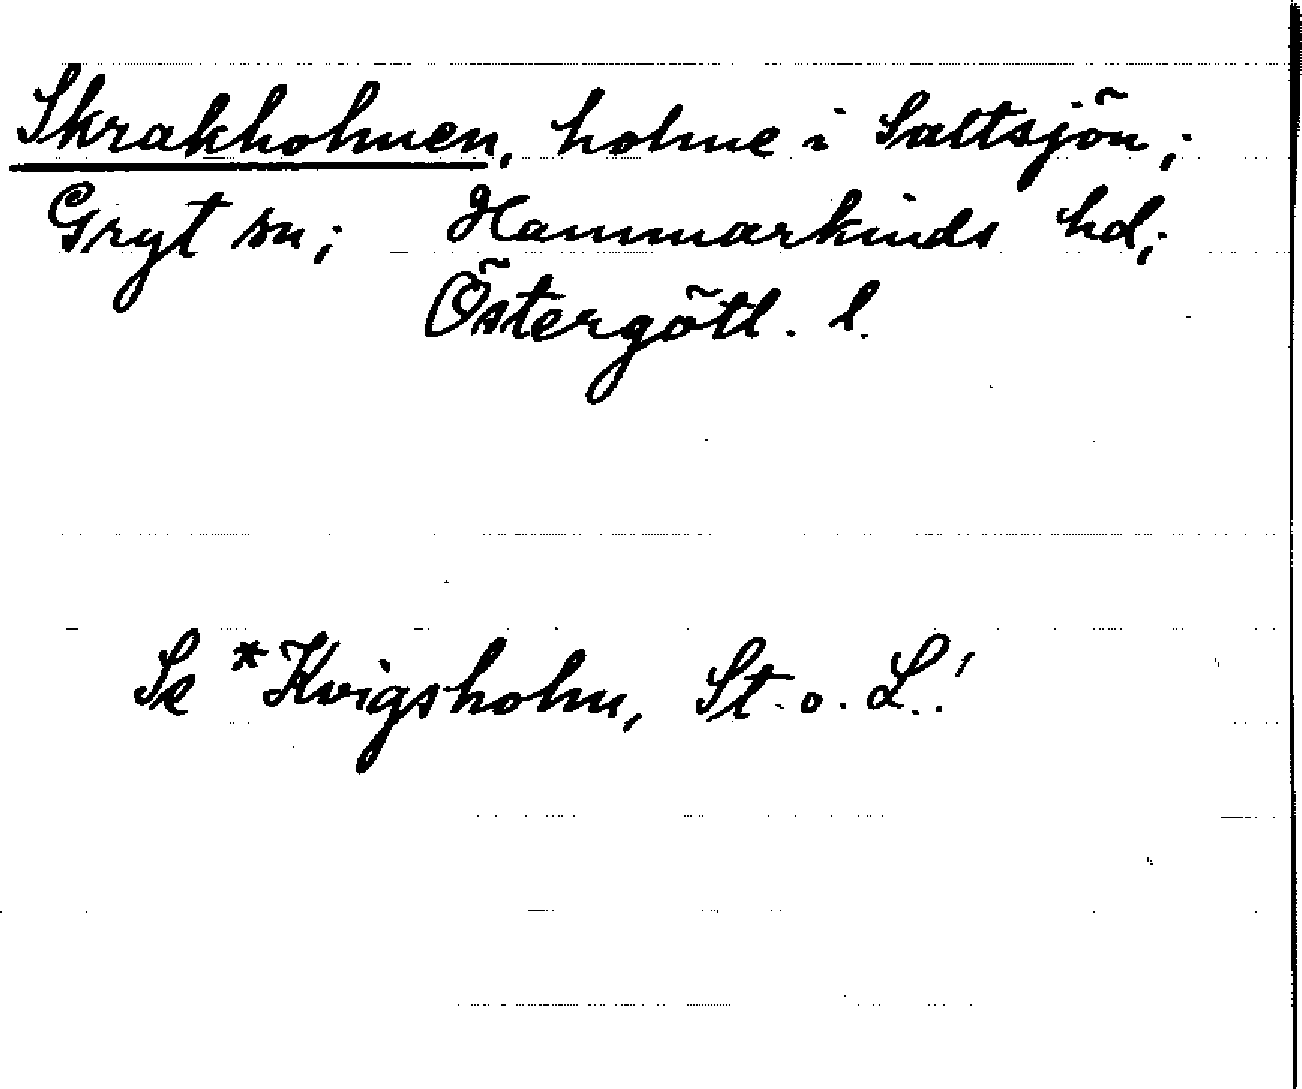 Skrakholmen, holme i Saltsjön;
Gryt sn; Hammarkinds hd;
Östergötl. l.
Se *Kvigsholm, St. o. L.!